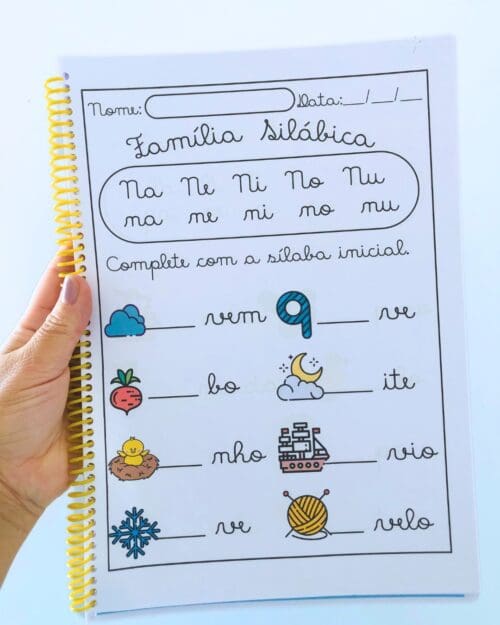 Nome: Data:__/__/__
Família Silábica
Na Ne Ni No Nu
na ne ni no nu
Complete com a sílaba inicial.
____ vem 9 ____ ve
____ bo ____ ite
____ nho ____ vio
____ ve ____ velo